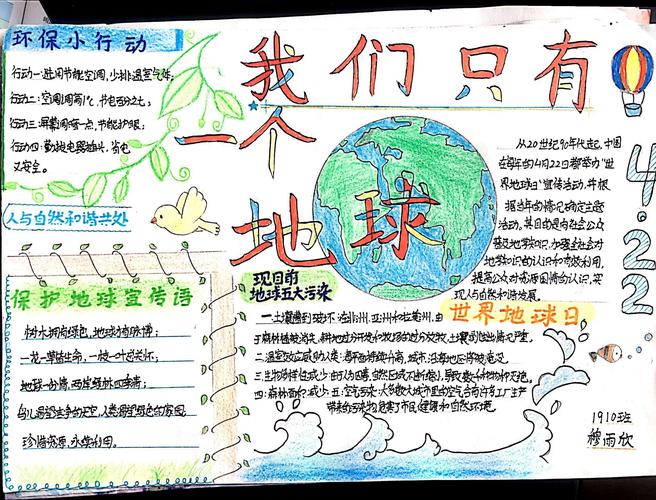 环保小行动
行动一:选用节能空调,少排温室气体;
行动二:空调调高1℃,节电百分之七;
行动三:屏幕调暗一点,节能护眼;
行动四:勤拔电器插头,省电
又安全。
人与自然和谐共处
我们只有
一个
地球
从20世纪90年代起,中国
在每年的4月22日都举办“世
界地球日”宣传活动,并根
据当年的情况确定主题
活动,其目的是向社会公众
普及地学知识,加强全社会对
地学知识的认识和有效利用,
提高公众对资源国情的认识,实
现人与自然和谐发展。
4.22
保护地球宣传语
树木拥有绿色,地球才有脉搏;
一花一草皆生命,一枝一叶总关情;
地球
鸟儿渴望洁净的天空,人类渴望绿色的家园;
珍惜资源,永续利用。
现目前
地球五大污染
世界地球日
一.土壤遭到破坏:在非洲、亚洲和拉美州,由
于森林植被消失,耕地过分开发和牧场的过分放牧,土壤剥蚀情况严重。
二.温室效应威胁人类:海平面持续升高,城市、沿海地区将被淹没。
三.生物多样性减少:由于人为因素,自然区域不断缩小,导致数千种物种灭绝。
四:森林面积减少 五:空气污染:大多数大城市里的空气含有许多工厂生产
带来的污染物,危害了市民健康和自然环境。
1910班
穆雨欣